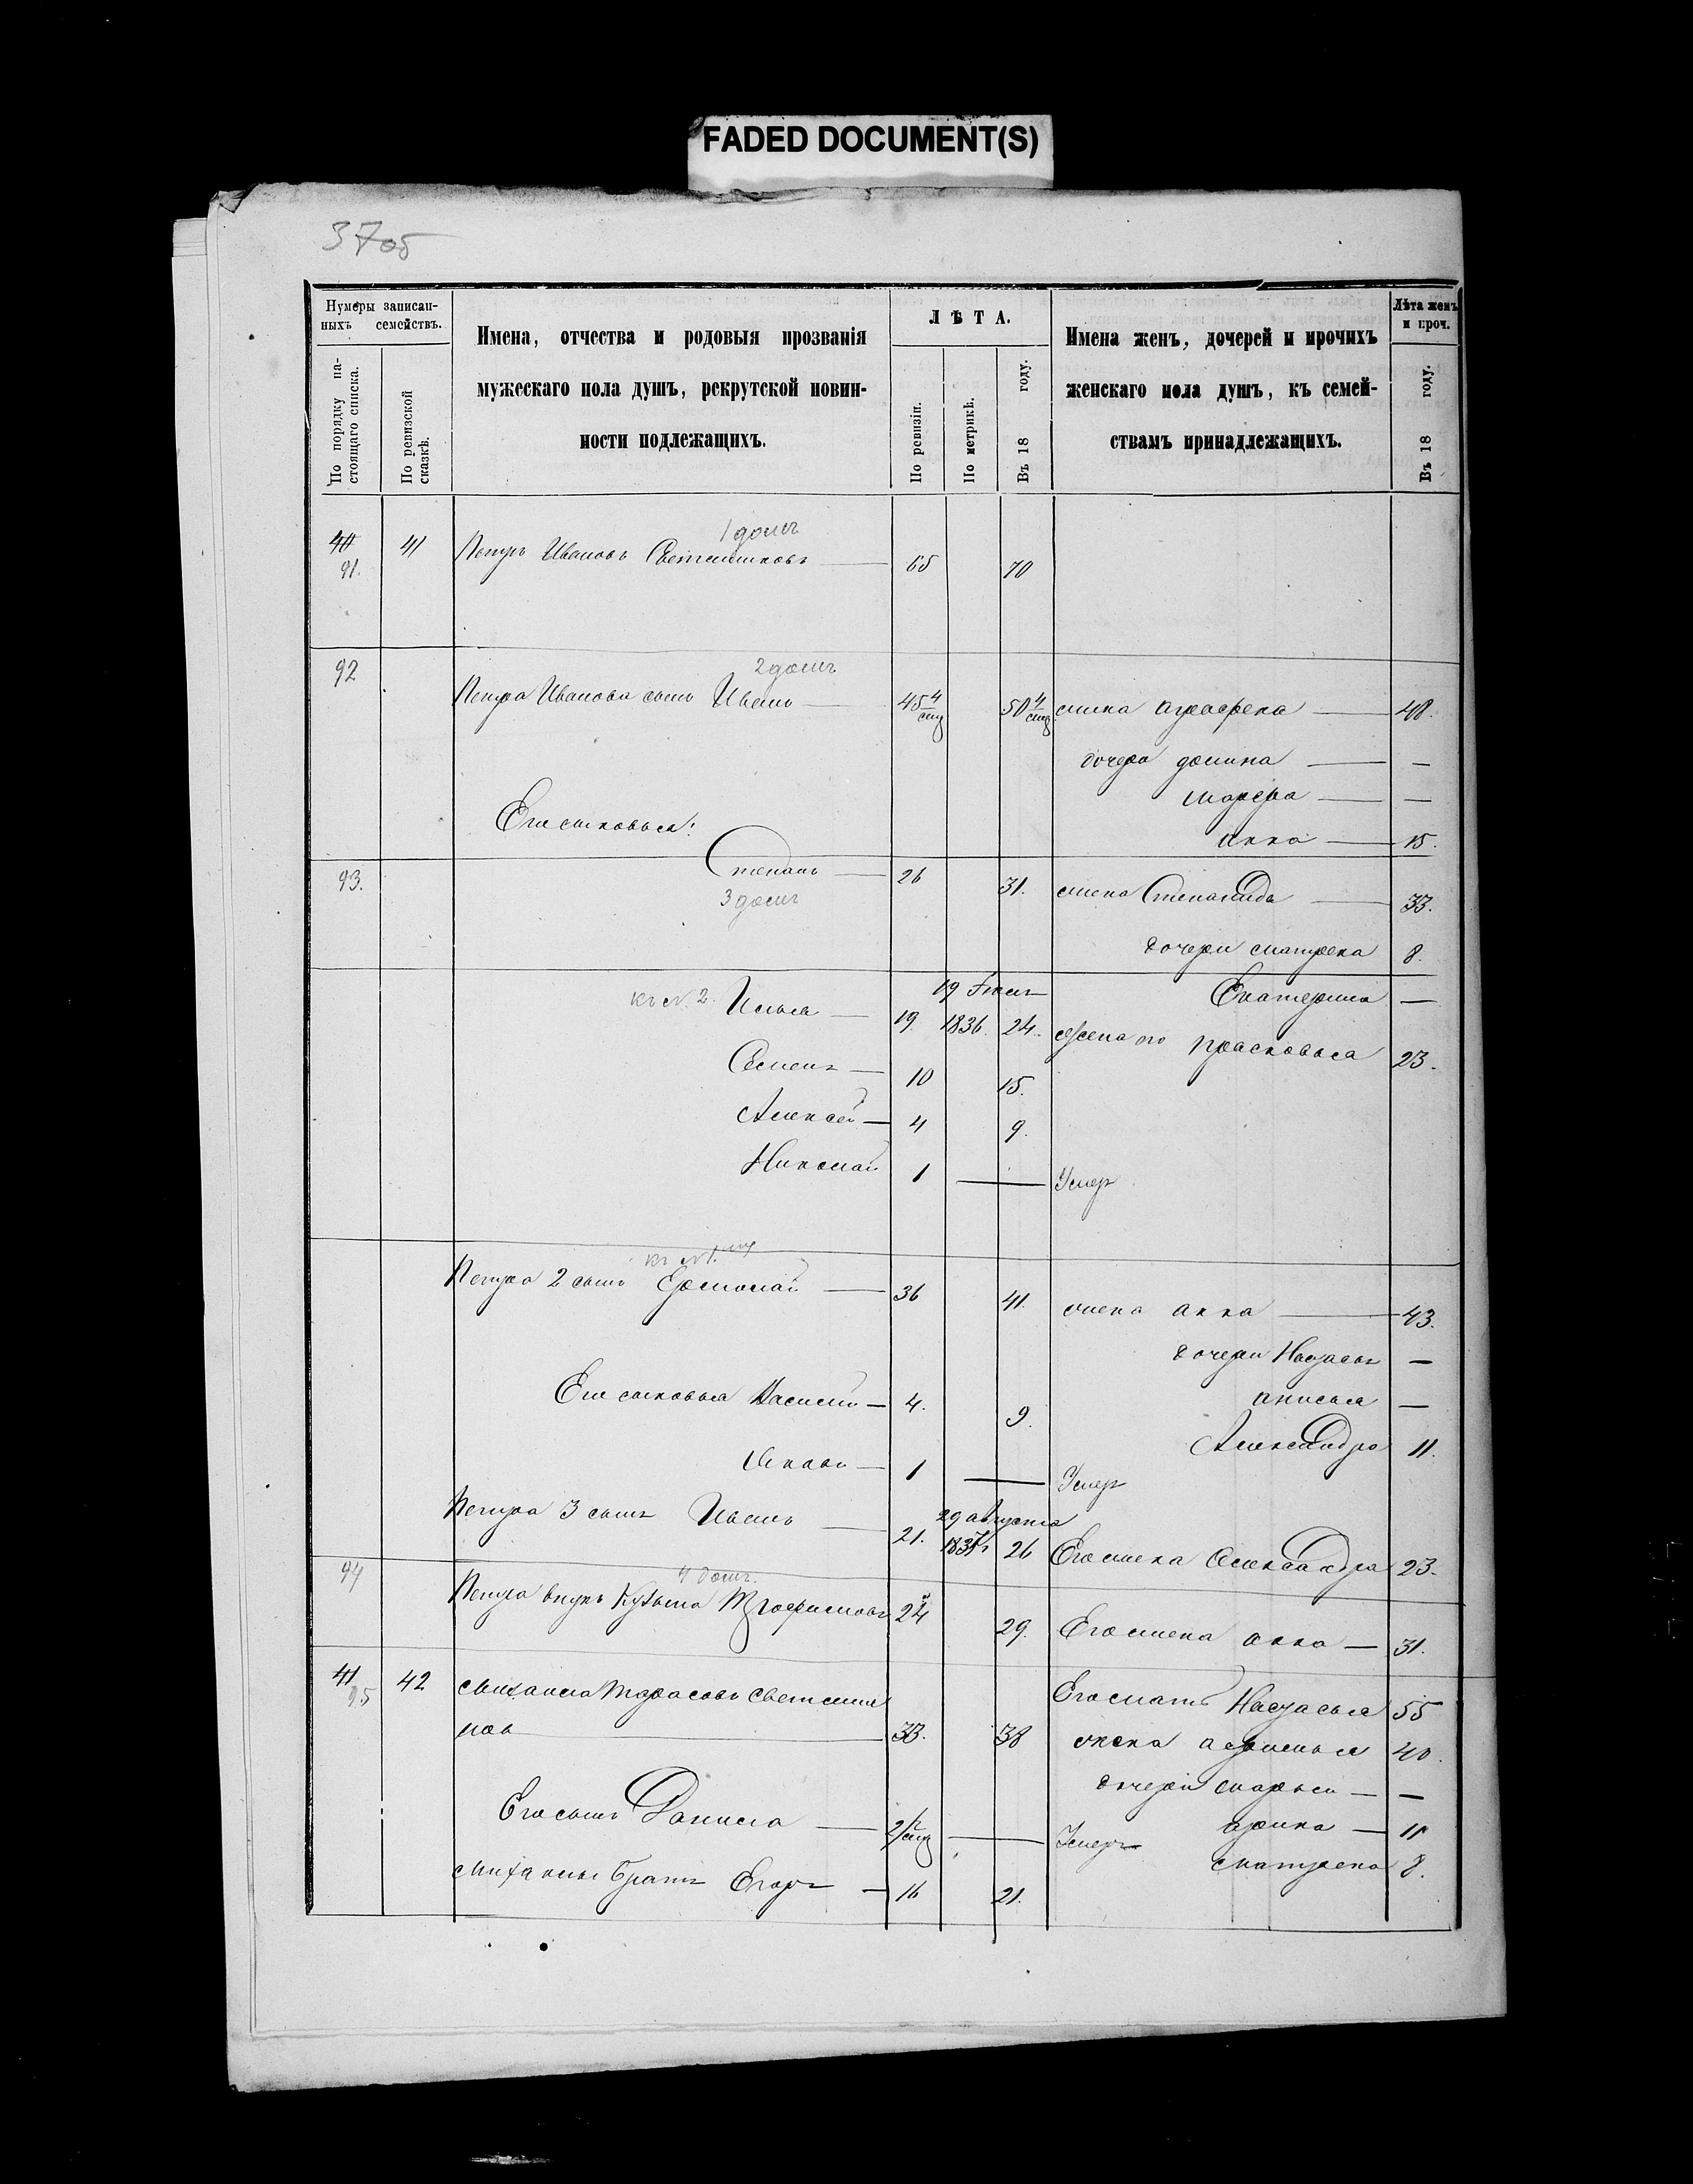 FADED DOCUMENT(S)
37об
Нумеры записан-
ныхъ семействъ.
По порядку на-
стоящаго списка.
По ревизской
сказкѣ.
Имена, отчества и родовыя прозванія
мужескаго пола душъ, рекрутской повин-
ности подлежащихъ.
ЛѢТА.
По ревизіи.
По метрикѣ.
Въ 18 году.
Имена женъ, дочерей и прочихъ
женскаго пола душъ, къ семей-
ствамъ принадлежащихъ.
Лѣта женъ
и проч.
Въ 18 году.
1 домъ
40 41 Петръ Ивановъ 65 70
91.
2 домъ
92
Петра Иванова сынъ Иванъ 45 4 50 4 жена Аграфена 48.
мцъ мцъ
дочери Домна —
Марфа —
Его сыновья:
Анна 15.
93. Степанъ 26 31. жена Степанида 33.
3 домъ
дочери Матрена 8.
Екатерина —
къ № 2. Илья 19 19 1836. 24. жена его Прасковья 23.
Семенъ 10 15.
Алексей 4 9.
Николай 1 — Умеръ
къ № 1.
Петра 2 сынъ Ермолай 36 41. жена Анна 43.
дочери Настасья —
Его сыновья Василий 4. 9. Анисья —
Александра 11.
Яковъ 1 — Умеръ
29 Августа
Петра 3 сынъ Иванъ 21. 26 Его жена Александра 23.
94 4 домъ.
Петра внукъ Кузьма Трофимовъ 24 29. Его жена Анна 31.
41 42 Михаила Тарасовъ
95
33. 38 Его мать Настасья 55
жена 40.
дочери Марья —
Его сынъ Данила 2 — Умеръ Арина 11
Матрена 8.
Михаилы братъ Егоръ 16 21.